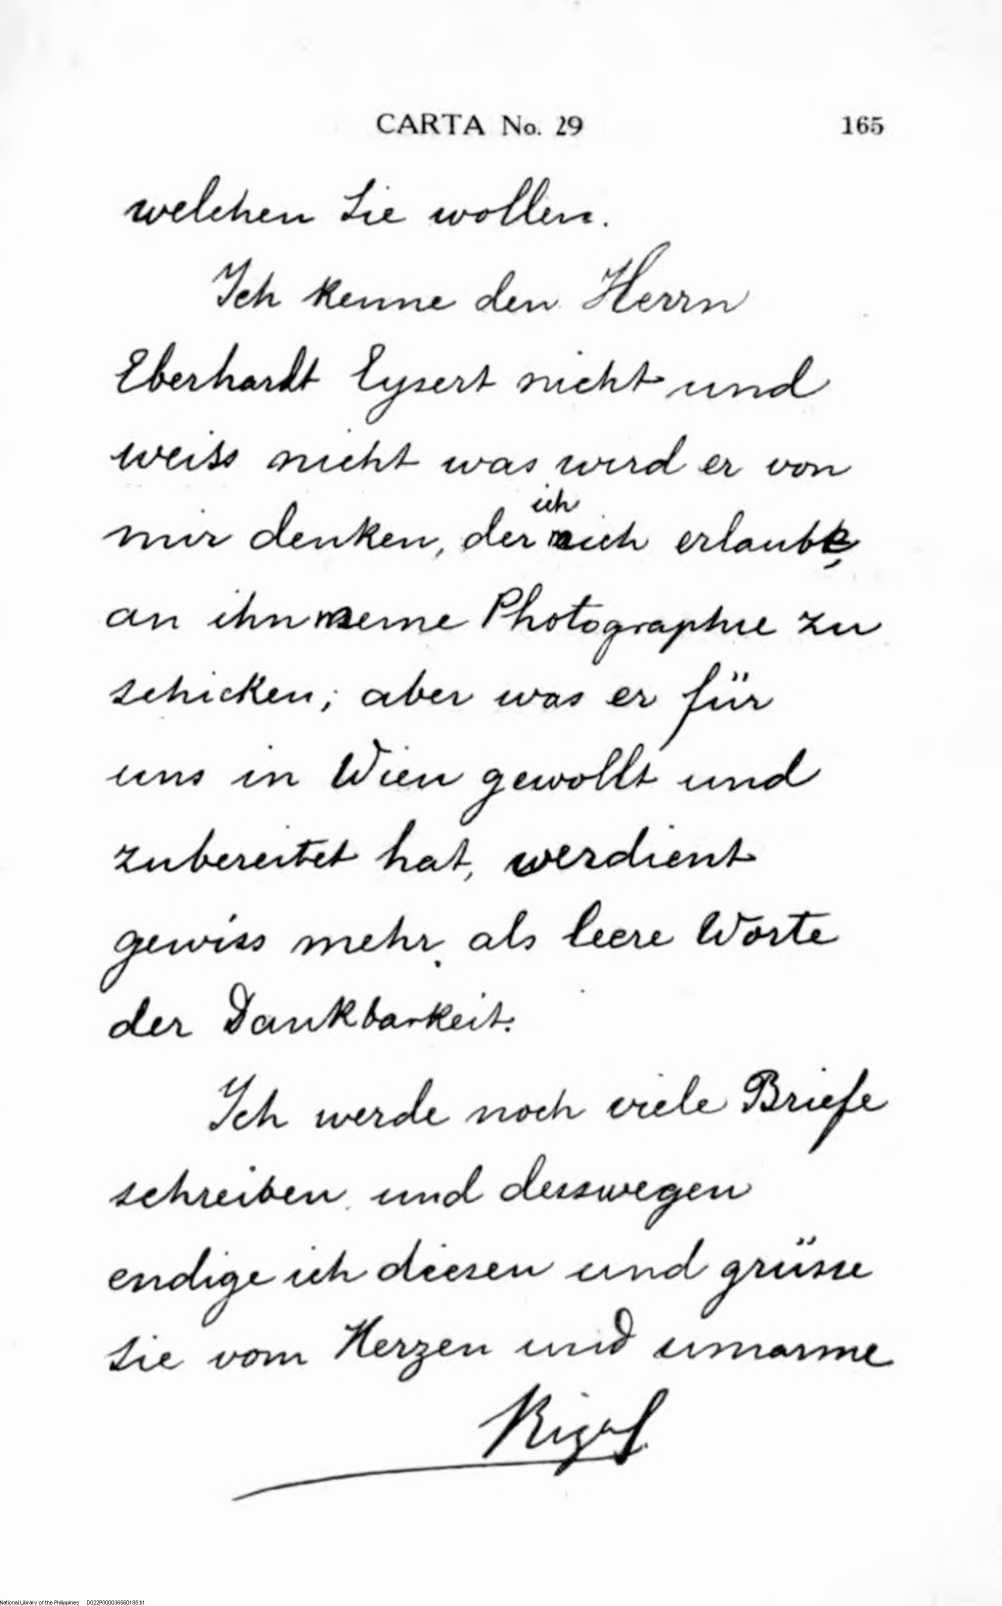 CARTA No. 29 165
welchen Sie wollen.
Ich kenne den Herrn
Eberhardt Eysert nicht und
weiss nicht was wird er von
ich
mir denken, der mich erlaubte,
an ihn meine Photographie zu
schicken; aber was er für
uns in Wien gewollt und
zubereitet hat, verdient
gewiss mehr als leere Worte
der Dankbarkeit.
Ich werde noch viele Briefe
schreiben und desswegen
endige ich diesen und grüsse
Sie vom Herzen und umarme
Rizal
National Library of the Philippines